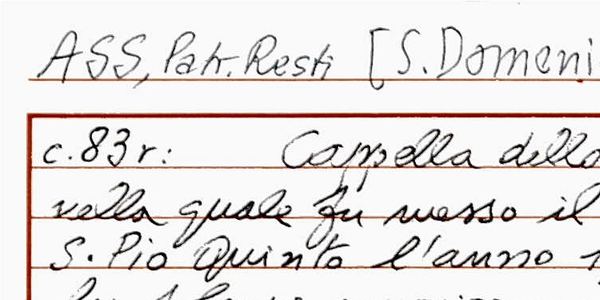 ASS, Patr. Resti [S. Domeni
c. 83r: Cappella della
nella quale fu messo il
S. Pio Quinto l'anno